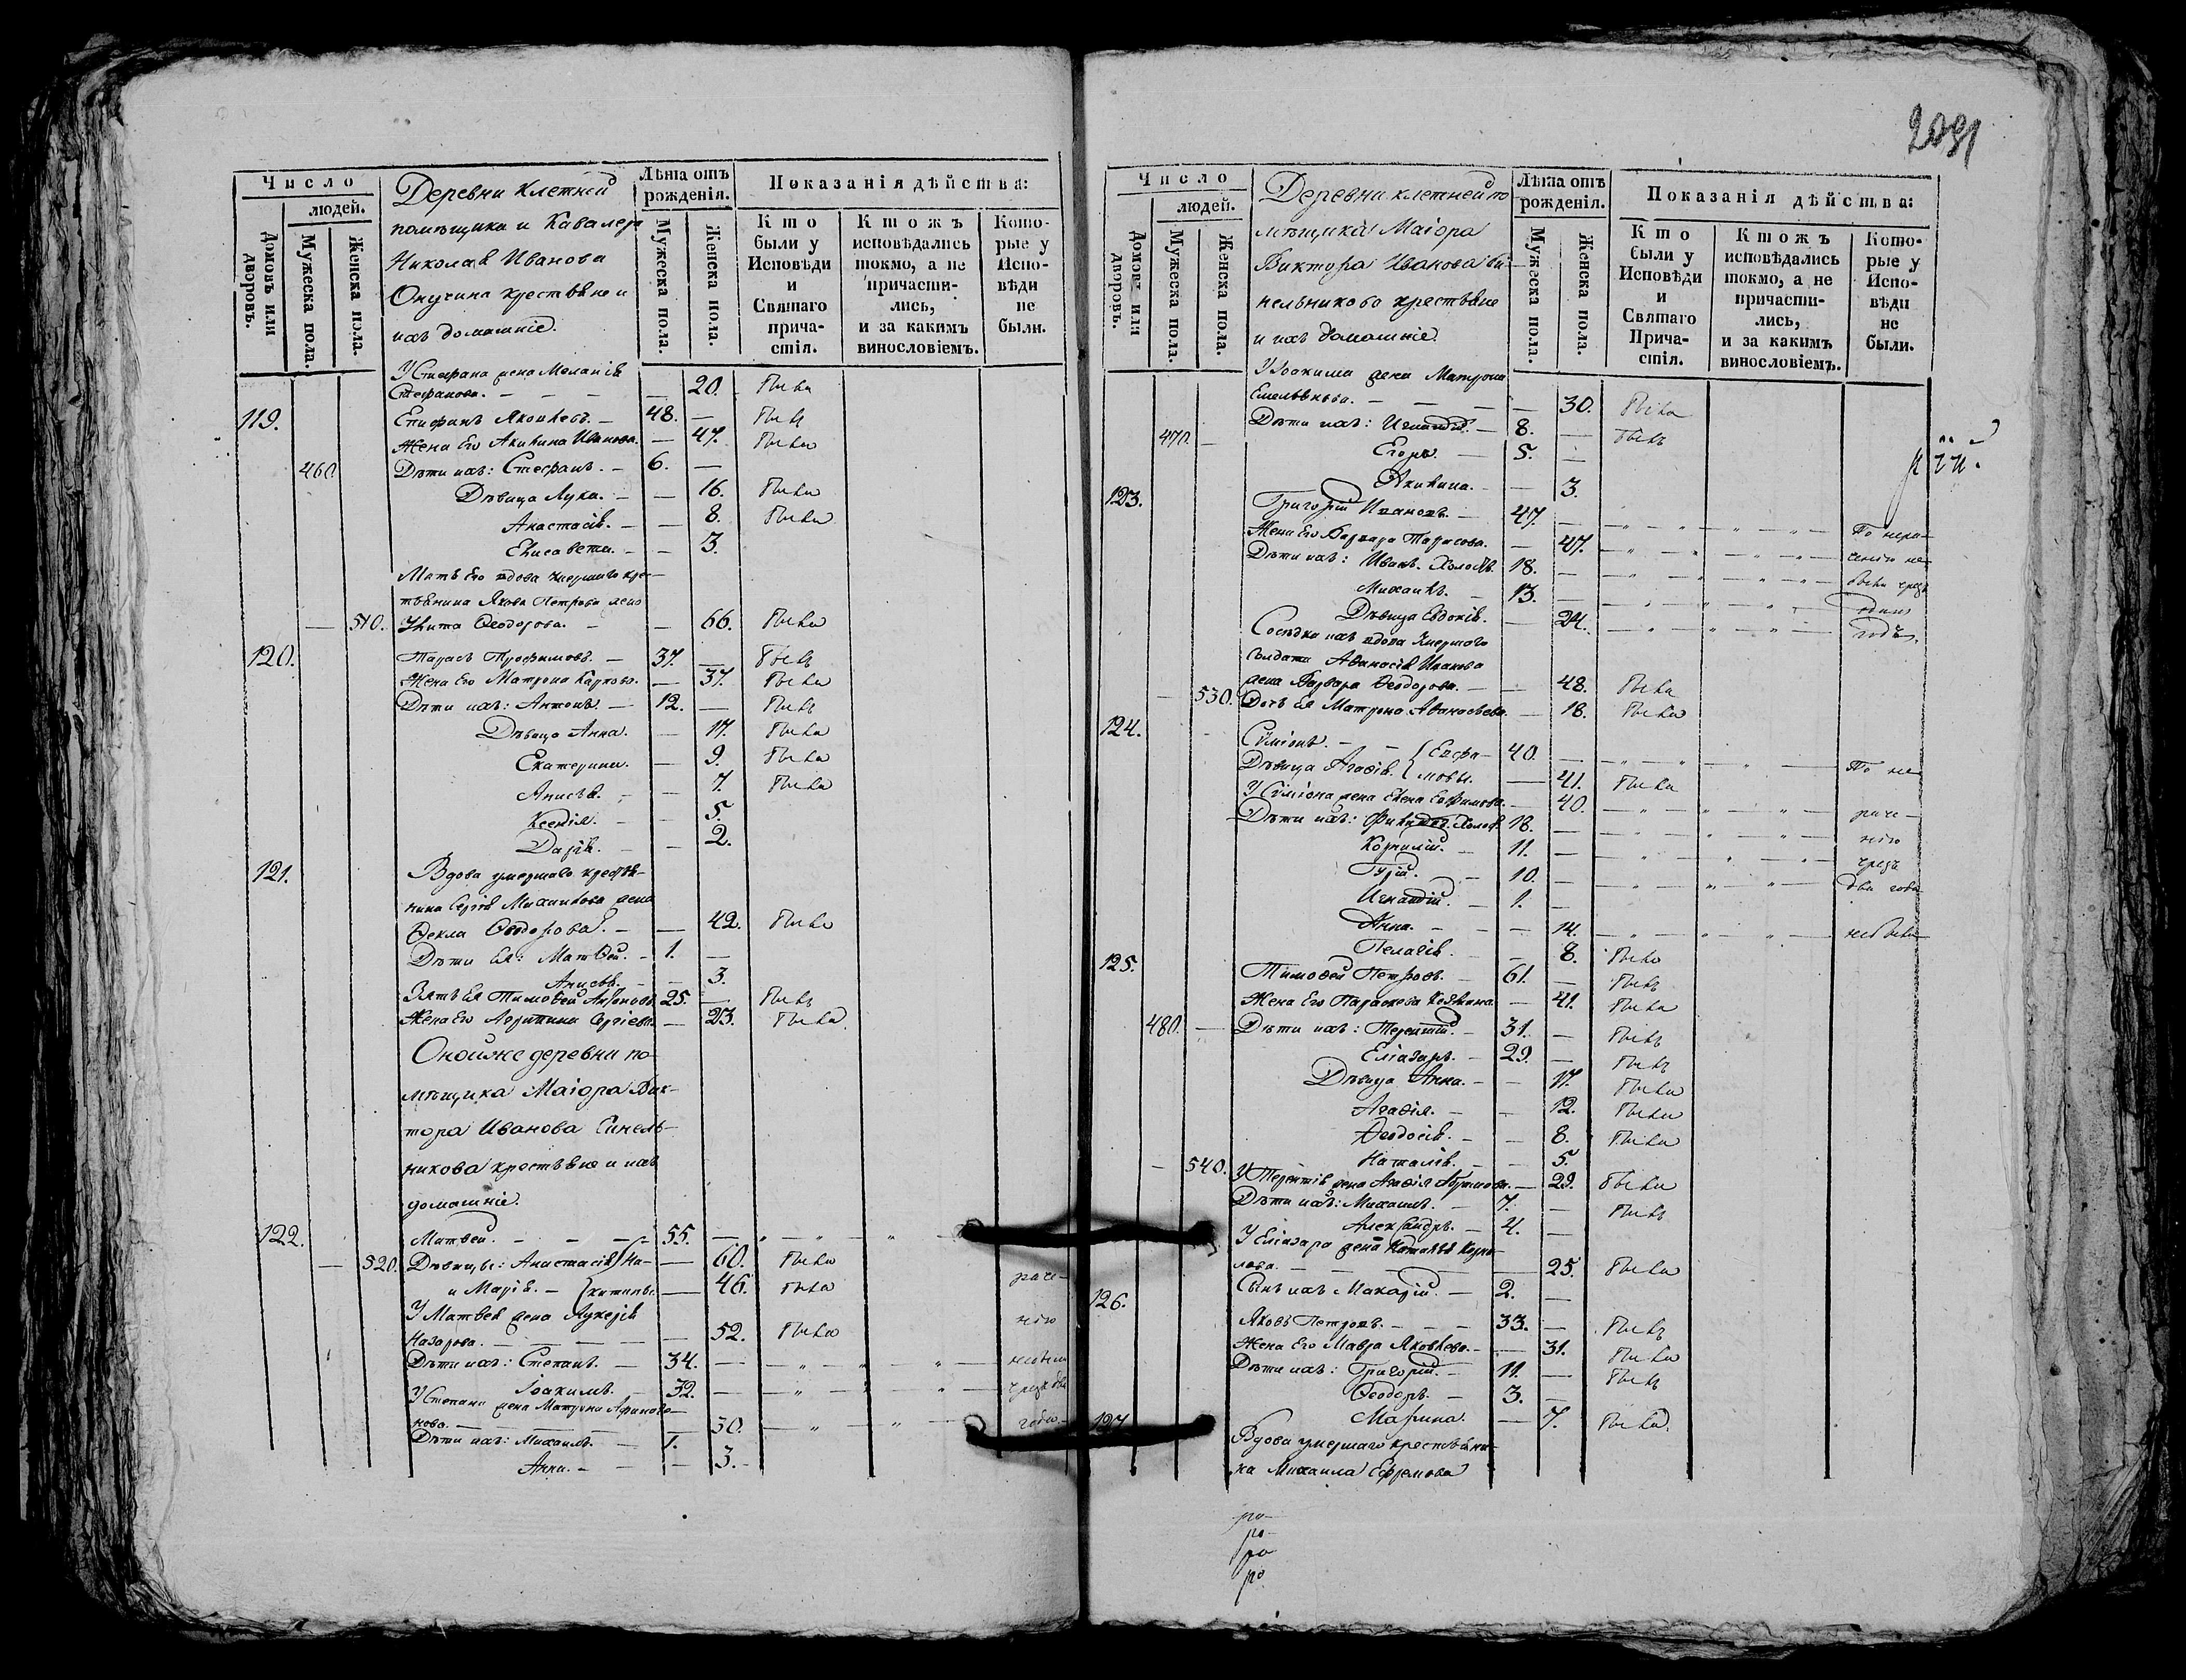 Число
людей.
Домовъ или дворовъ.
Мужеска пола.
Женска пола.
Деревни Клетней
помѣщика и Кавалера
Николая Иванова
Окунина крестьяне и
ихъ домашніе.
Лѣта отъ рожденія.
Мужеска пола.
Женска пола.
Показанія дѣйства:
Кто были у Исповѣди и Святаго причастія.
Ктожъ исповѣдались токмо, а не причастились, и за какимъ винословіемъ.
Которые у Исповѣди не были.
У Стефана жена Меланія
Стефанова. — 20. была
119. Епифанъ Яковлевъ. 48. — былъ
Жена Его Акилина Иванова. — 47. была
460. Дѣти ихъ: Стефанъ. — 6. —
Дѣвица Лука. — — 16. была
Анастасія. — — 8. была
Елисавета. — — 3.
Мать Его вдова умершаго кре-
стьянина Якова Петрова жена
— 510. Улита Ѳеодорова. — — 66. была
120. Тарасъ Трофимовъ. — 37. — былъ
Жена Его Матрона Карпова. — 37. была
Дѣти ихъ: Антонъ. — 12. — былъ
Дѣвица Анна. — 17. была
Екатерина. — 9. была
Анисья. — — 7. была
Ксенія. — — 5.
Дарія. — — 2.
121. Вдова умершаго крестья-
нина Сергѣя Михайлова жена
Ѳекла Ѳеодорова. — — 42. была
Дѣти ея: Матѳей. — 1. —
Анисья. — — 3.
Зять ея Тимоѳей 25. — былъ
Жена Его Агрипина Сергіева. — 23. была
Оной же деревни по-
мѣщика Маіора Вик-
тора Иванова Синель-
никова крестьяне и ихъ
домашніе.
122. Матвей. — — — 55. —
— 520. Дѣвицы: Анастасія Ни- — 60. была
и Марія. — китины — 46. была раче-
У Матвея жена Лукерія
Назарова. — — 52. была нію
Дѣти ихъ: Степанъ. — 34. — небыли
Іоакимъ. — 32. — чрезъ два
У Степана жена Матрона
нова. — — 30. — года
Дѣти ихъ: Михаилъ. — 1. —
Анна. — — — 3. —
Число
людей.
Домовъ или дворовъ.
Мужеска пола.
Женска пола.
Деревни клетней по-
мѣщика Маіора
Виктора Иванова Си-
нельникова крестьяне
и ихъ домашніе.
Лѣта отъ рожденія.
Мужеска пола.
Женска пола.
Показанія дѣйства:
Кто были у Исповѣди и Святаго Причастія.
Ктожъ исповѣдались токмо, а не причастились, и за какимъ винословіемъ.
Которые у Исповѣди не были.
У Іоакима жена Матрона
Емельянова. — — — 30. была
470. — Дѣти ихъ: Игнатій. — 8. — былъ
Егоръ. — 5. —
Акилина. — — 3.
123. Григорій Ивановъ. — 47. — По нера-
Жена Его Варвара Тарасова. — 47. — ченію не
Дѣти ихъ: Иванъ. Холостъ. 18. — были чрезъ
Михаилъ. — 13. — одинъ
Дѣвица Евдокія. — 24. — годъ.
Сосѣдка ихъ вдова умершаго
солдата Аѳанасія Иванова
жена Варвара Ѳеодорова. — — 48. была
— 530. Дочь ея Матрона Аѳанасьева. — 18. была
124. Сѵмеонъ. — — Евфи- 40. — По не
Дѣвица Агаѳія. мовы. — 41. была
У Сѵмеона жена Елена Евфимова. — 40. — раче-
Дѣти ихъ: Холостъ. 18. — нію
Корнилій. — 11. — чрезъ
Гурій. — 10. — два года
Игнатій. — 1. —
Анна. — — — 14. — небыли
Пелагія. — 8. была
125. Тимоѳей Петровъ. — 61. — былъ
Жена Его Параскева — 41. была
480. — Дѣти ихъ: Терентій. — 31. — былъ
Еліазаръ. — 29. — былъ
Дѣвица Анна. — — 17. была
Агаѳія. — — 12. была
Ѳеодосія. — — 8. была
— 540. Наталія. — — 5.
У Терентія жена Агаѳія — 29. была
Дѣти ихъ: Михаилъ. — 7. — былъ
Александръ. — 4. —
У Еліазара жена Наталья Карпо-
лова. — — 25. была
Сынъ ихъ Макарій. — 2. —
126. Яковъ Петровъ. — — — 33. — былъ
Жена Его Мавра Яковлева. — — 31. была
Дѣти ихъ: Григорій. — 11. — былъ
Ѳеодоръ. — 3. —
Марина. — 7. была
127. Вдова умершаго крестьяни-
на Михаила Ефремова
ро-
ро-
ро
ро